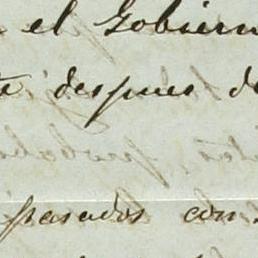 el Gobiern
despues de
pasados con